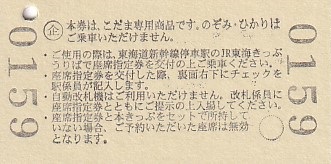 0159
企
本券は、こだま専用商品です。のぞみ・ひかりは
ご乗車いただけません。
・ご使用の際は、東海道新幹線停車駅のJR東海きっぷ
うりばで座席指定券を交付の上ご乗車ください。
・座席指定券を交付した際、裏面右下にチェックを
駅係員が記入します。
・自動改札機はご利用いただけません。改札係員に
座席指定券とともにご提示の上入場してください。
・座席指定券と本きっぷをセットで所持して
いない場合、ご予約いただいた座席は無効
となります。
0159